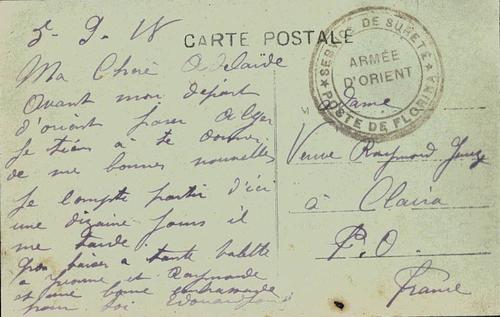 5-9-18
CARTE POSTALE
Ma Chère Adelaïde
Avant mon départ
d'orient pour Alger
je tiens à te donner
de me bonnes nouvelles
Je compte partir d'ici
une dizaine jours il
me tarde.
gros baiser a tante
a Yvonne et Raymonde
et une bonne embrassade
pour toi Edouard
SERVICE DE SURETÉ
ARMÉE
D'ORIENT
POSTE DE FLORINA
Dame
Veuve Raymond
à Claira
P.O.
France